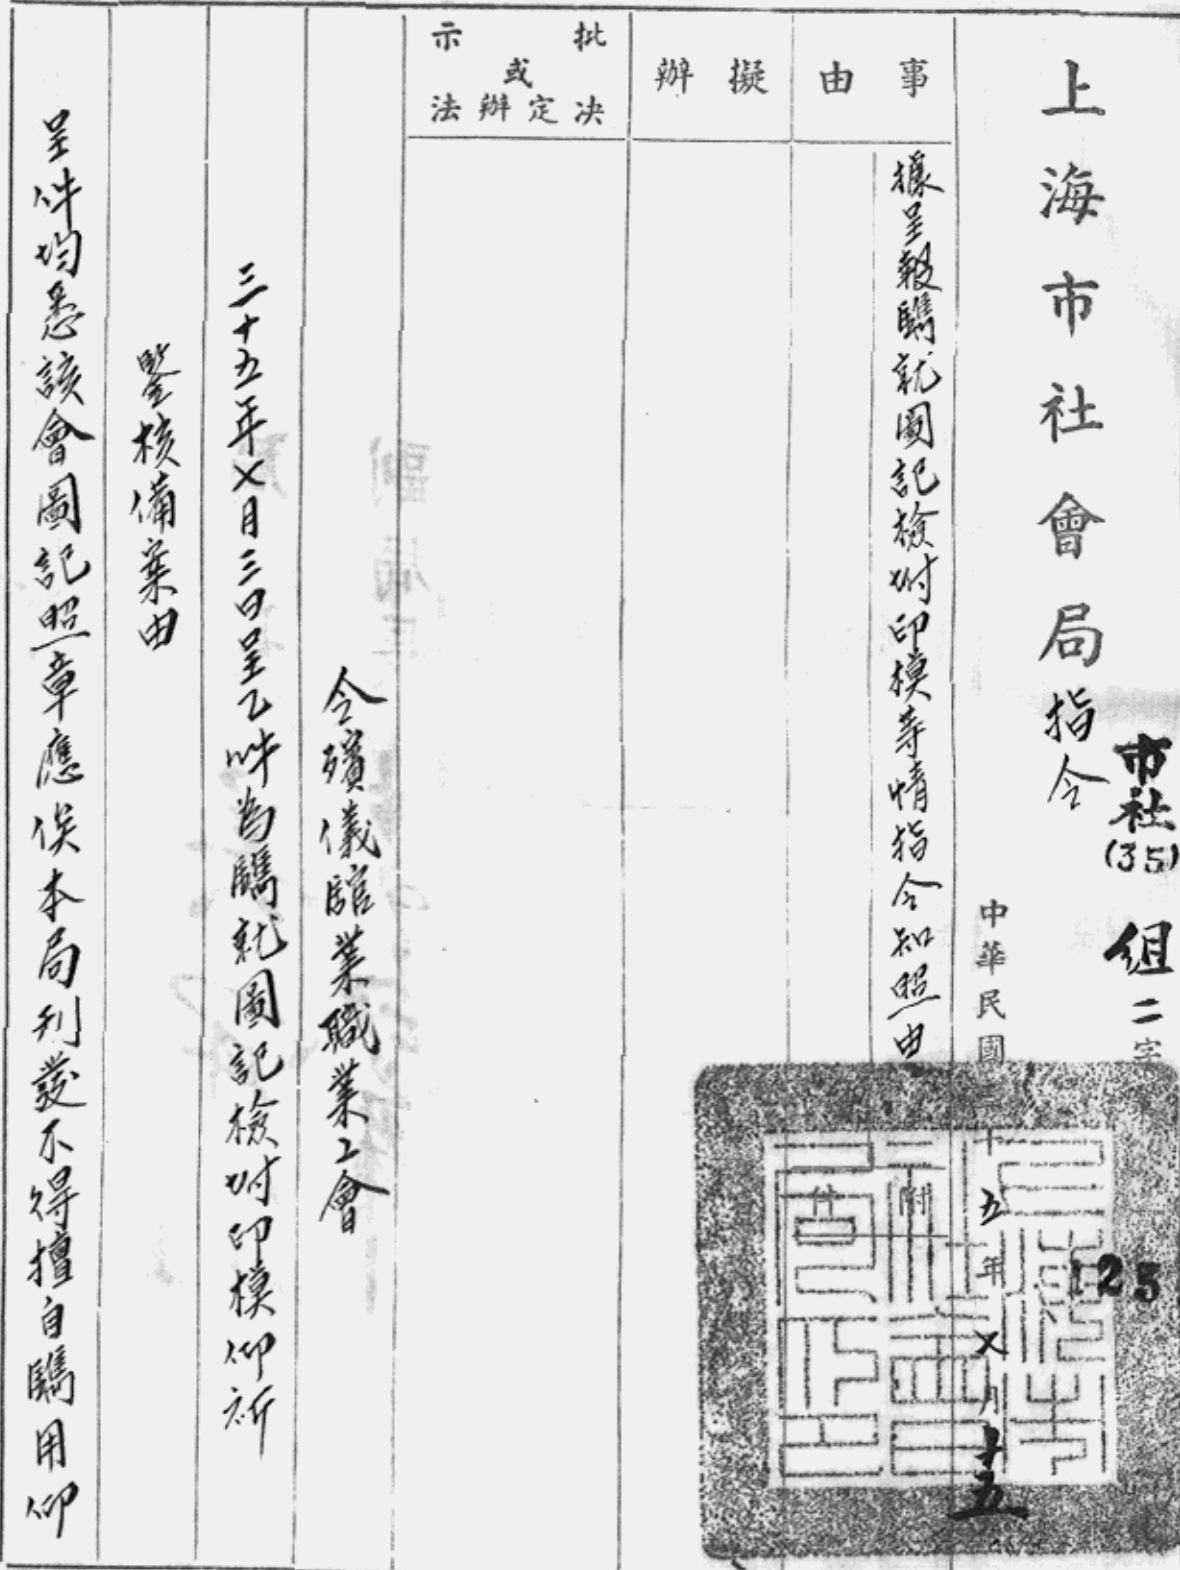 上海市社會局指令
市社(35)組二字
125
中華民國三十五年乂月十五
附
件
事由
據呈報鐫就圖記檢附印模等情指令知照由
擬辦
批示或決定辦法
令殯儀館業職業工會
三十五年乂月三日呈乙件為鐫就圖記檢附印模仰祈
鑒核備案由
呈件均悉該會圖記照章應俟本局刋發不得擅自鐫用仰